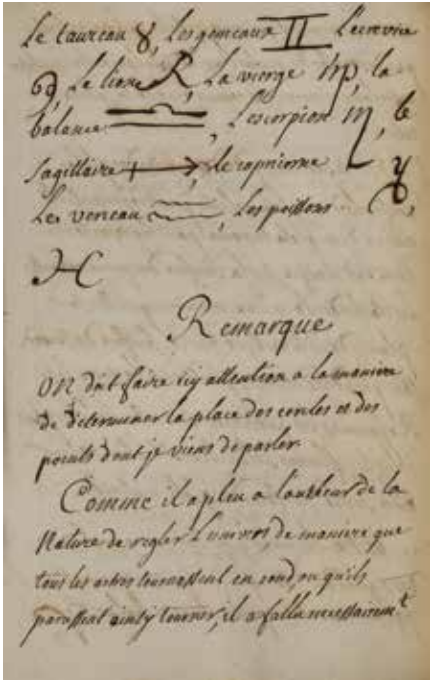 Le taureau ♉, Les gemeaux ♊ L'ecrevice
♋, Le lion ♌, La vierge ♍, la
balance ♎, L'escorpion ♏, le
sagittaire ♐, le capricorne ♑,
Les poissons
♓
Remarque
on doit faire icy attention a la maniere
de determiner la place des cercles et des
points dont je viens de parler.
Comme il a pleu a l'autheur de la
Nature de regler L'univers, de maniere que
tous les astres tournassent en rond ou qu'ils
parussent ainsy tourner, il a fallu necessairemt